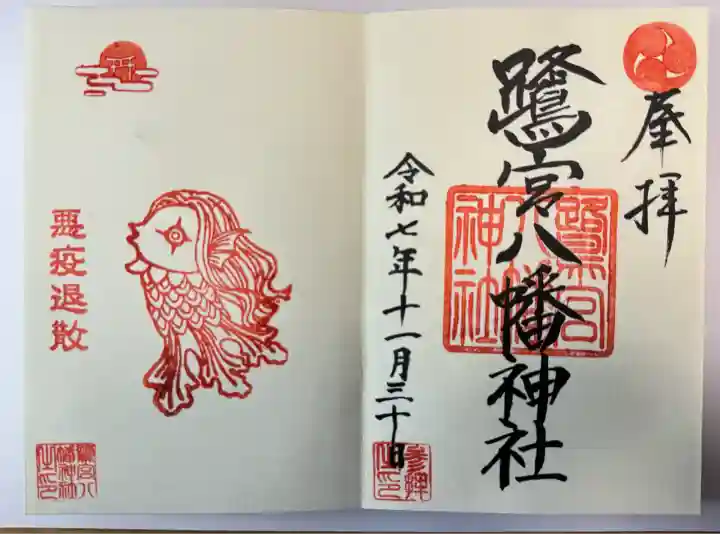 奉拝
鷺宮八幡神社
鷺宮八幡神社
令和七年十一月三十日
参拝之印
悪疫退散
鷺宮八幡神社之印